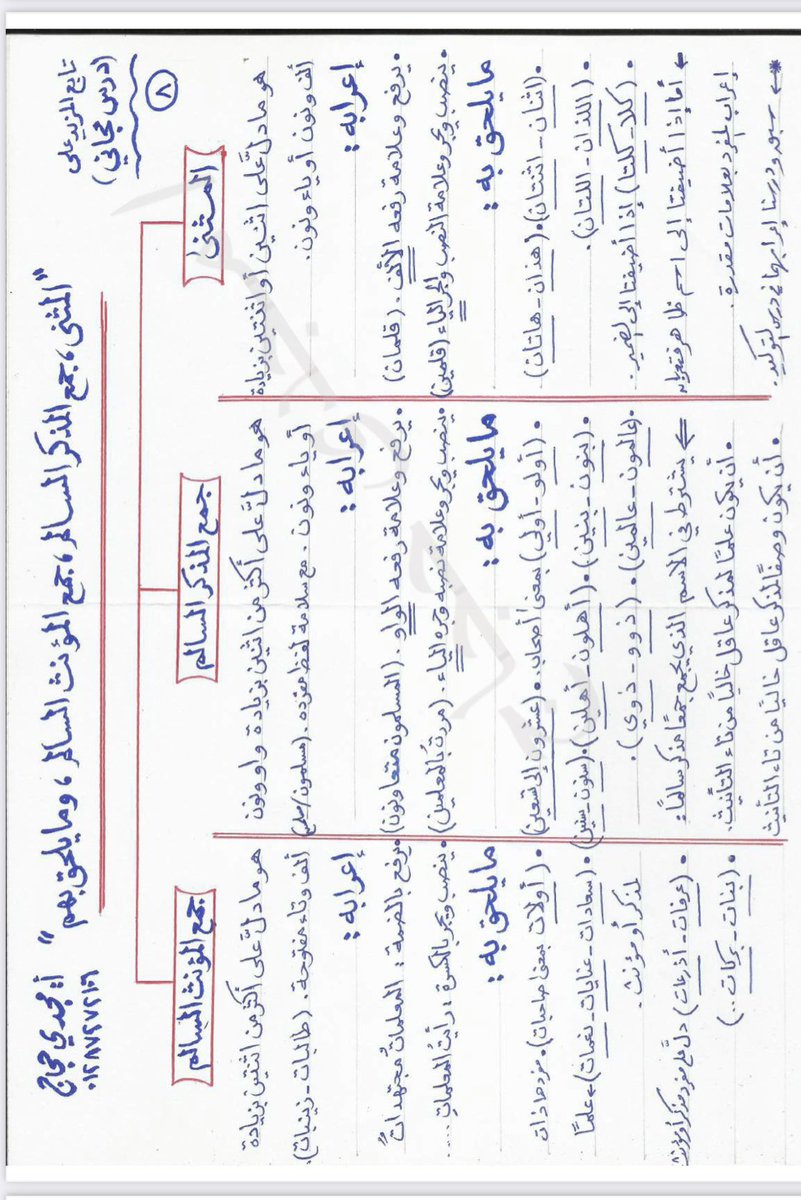 تابع المزيد على
(درس مجاني)
٨
"المثنى، جمع المذكر السالم، جمع المؤنث السالم، وما يلحق بهم"
أ: مجدي حجاج
٠١٢٨٧٤٧٢١٠٦
المثنى
هو ما دلَّ على اثنين أو اثنتين بزيادة
ألف ونون أو ياء ونون.
إعرابه:
• يرفع وعلامة رفعه الألف. (قلمان)
• ينصب ويجر وعلامة النصب والجر الياء (قلمين)
ما يلحق به:
• (اثنان - اثنتان). (هذان - هاتان)
• (اللذان - اللتان).
• (كلا - كلتا) إذا أضيفتا إلى الضمير.
← أما إذا أضيفتا إلى اسم ظاهر
إعراب المفرد بعلامات مقدرة.
*← سبق ودرسنا إعرابها في درس التوكيد.
جمع المذكر السالم
هو ما دلَّ على أكثر من اثنين بزيادة واو ونون
أو ياء ونون. مع سلامة لفظ مفرده. (مسلمون/مسلم)
إعرابه:
• يرفع وعلامة رفعه الواو. (المسلمون متعاونون)
• ينصب ويجر وعلامة نصبه وجره الياء. (مررت بالمعلمين)
ما يلحق به:
• (أولو - أولي) بمعنى أصحاب. (عشرون إلى تسعين)
• (بنون - بنين) • (أهلون - أهلين) • (سنون - سنين)
• (عالمون - عالمين) • (ذوو - ذوي).
⇐ يشترط في الاسم الذي يجمع جمعًا مذكر سالمًا:
• أن يكون علمًا لمذكر عاقل خاليًا من تاء التأنيث.
• أن يكون وصفًا لمذكر عاقل خاليًا من تاء التأنيث
جمع المؤنث السالم
هو ما دلَّ على أكثر من اثنتين بزيادة
ألف وتاء مفتوحة. (طالبات - زينبات).
إعرابه:
• يرفع بالضمة: المعلماتُ مجتهداتٌ
• ينصب ويجر بالكسرة: رأيتُ المعلماتِ ....
ما يلحق به:
• (أولات بمعنى صاحبات). مفردها ذات
• (سعادات - عنايات - نعمات) ← علمًا
لمذكر أو مؤنث.
• (عرفات - أذرعات) دل على مفرد مذكر أو مؤنث
• (بنات - بركات ..)